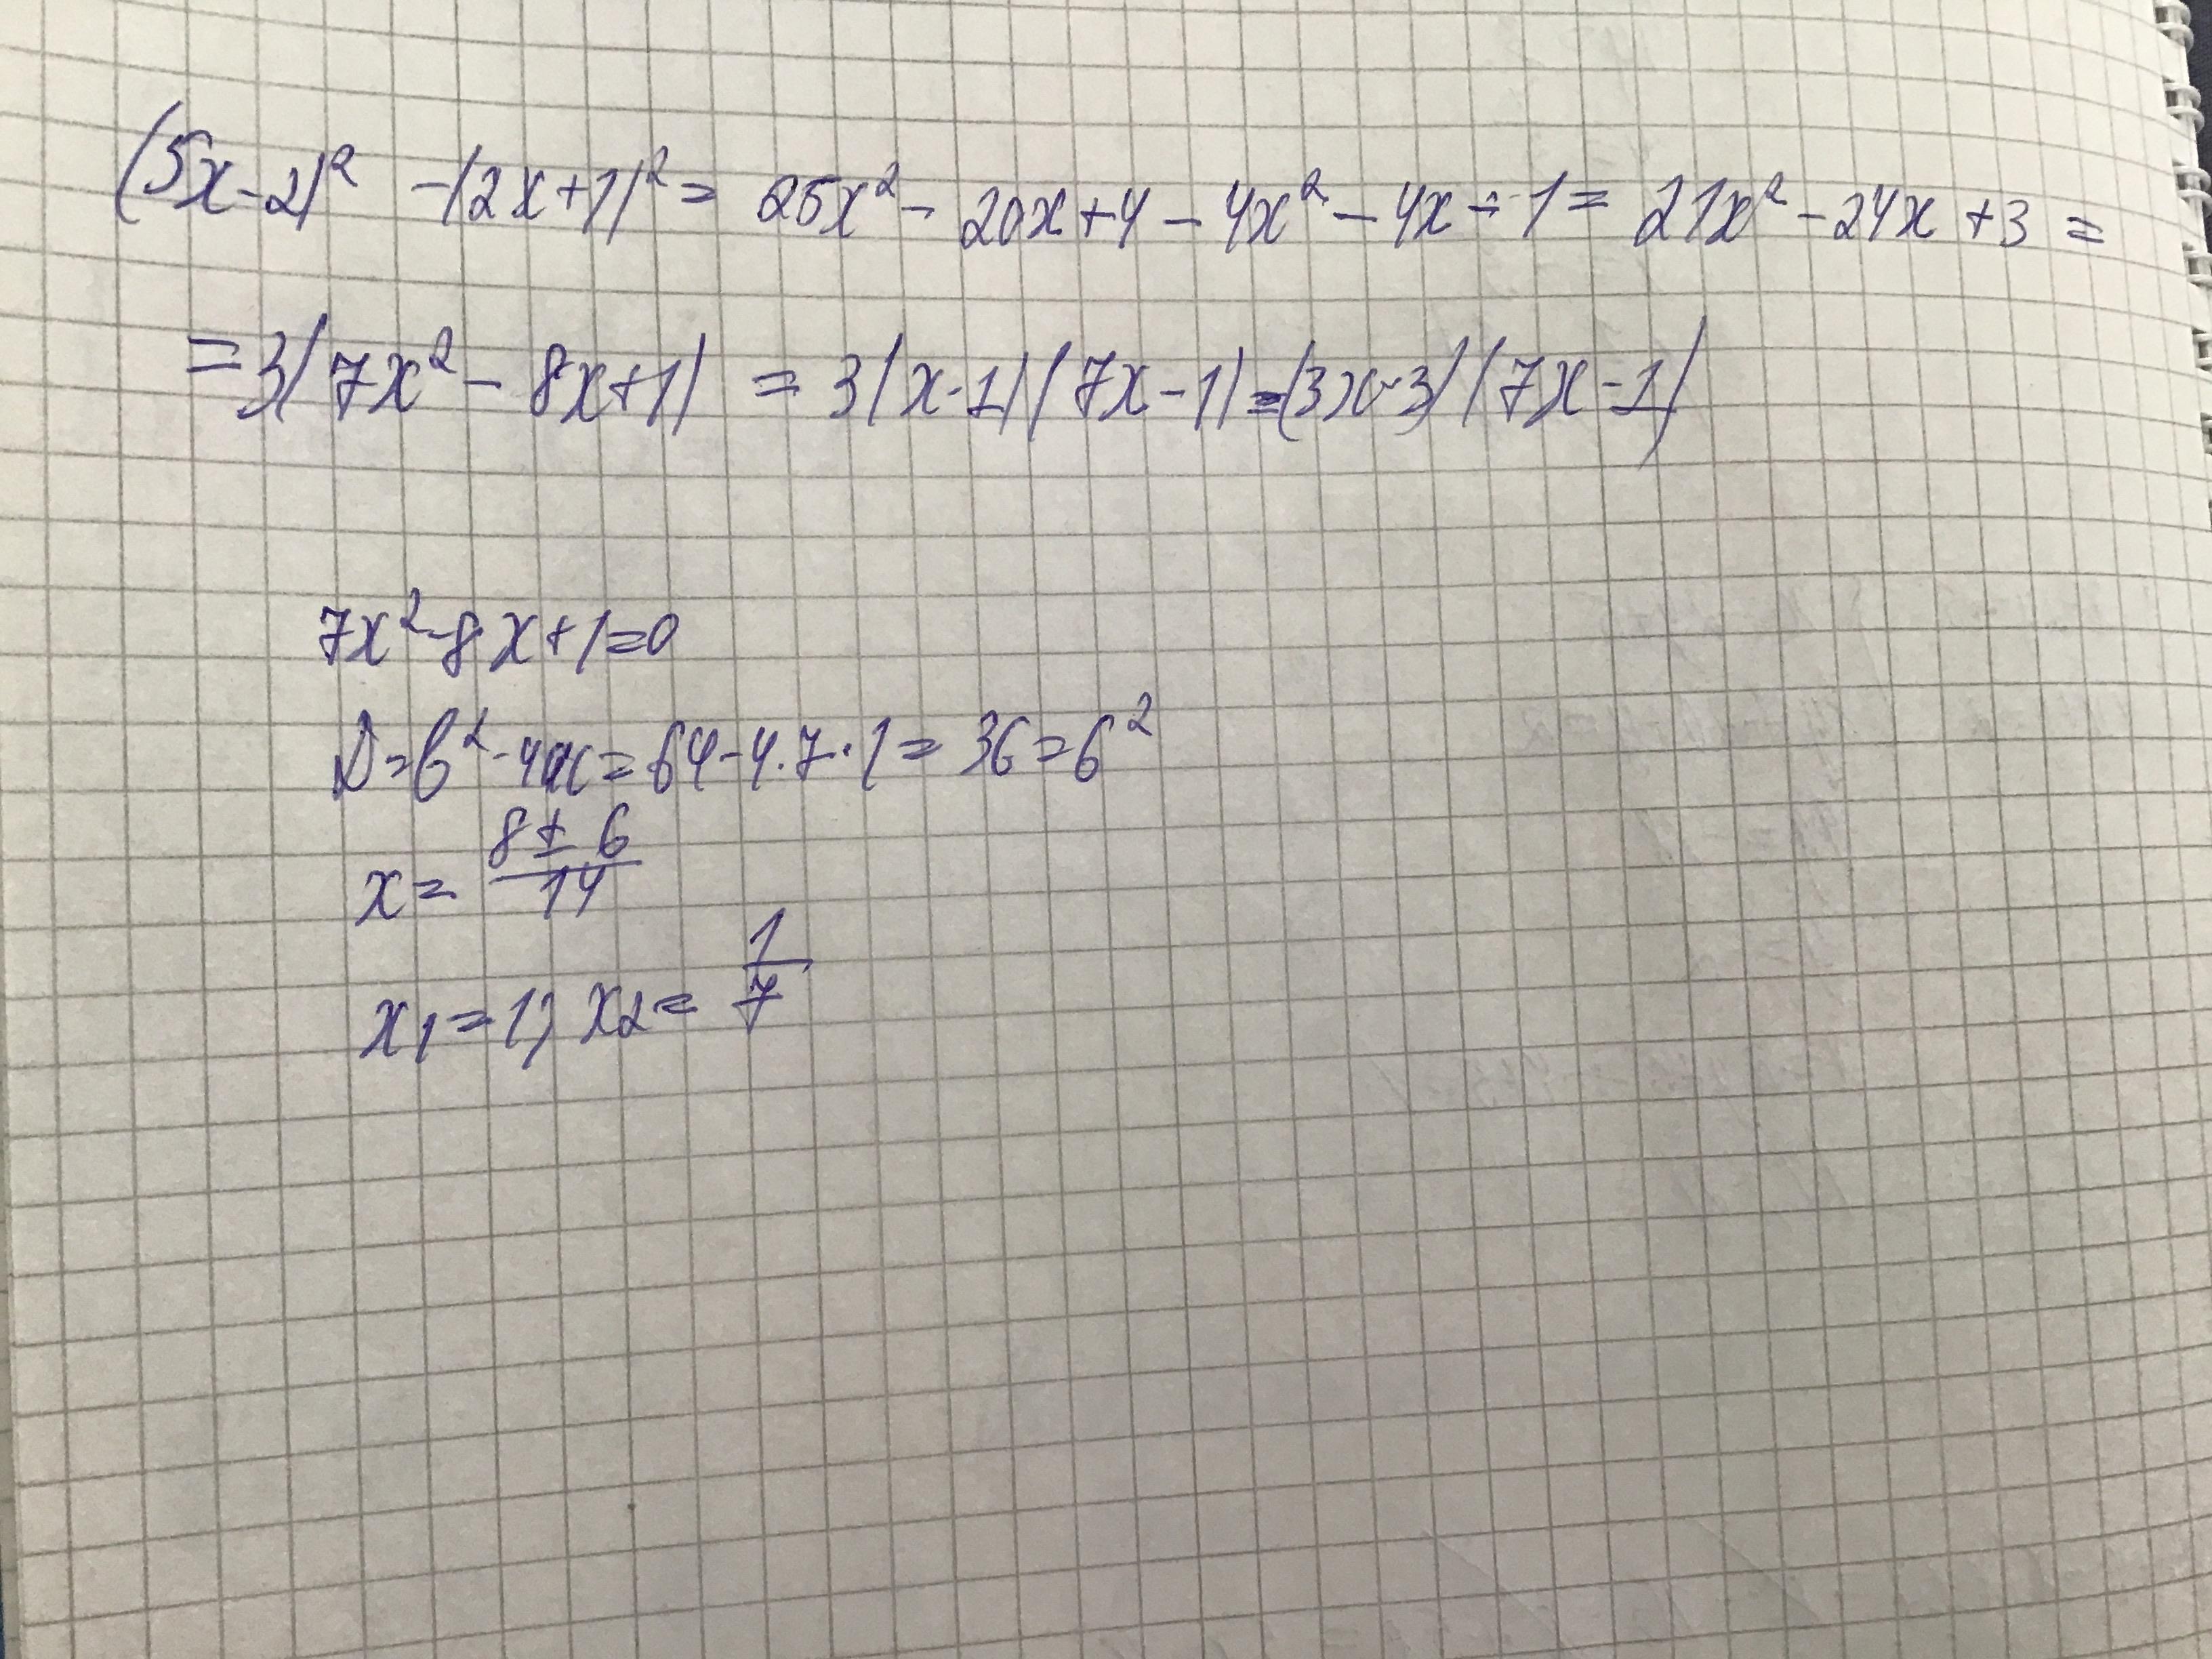 (5x-2)² -(2x+1)² = 25x² - 20x + 4 - 4x² - 4x - 1 = 21x² - 24x + 3 =
= 3(7x² - 8x + 1) = 3(x-1)(7x-1) = (3x-3)(7x-1)
7x² - 8x + 1 = 0
D = b² - 4ac = 64 - 4·7·1 = 36 = 6²
x = (8 ± 6)/14
x₁ = 1; x₂ = 1/7